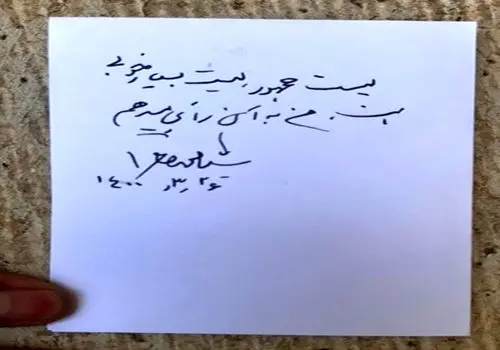 لیست جمهور، لیست بسیار خوبی
است. من به آن رأی میدهم
۱۴۰۰،۳،۲۶